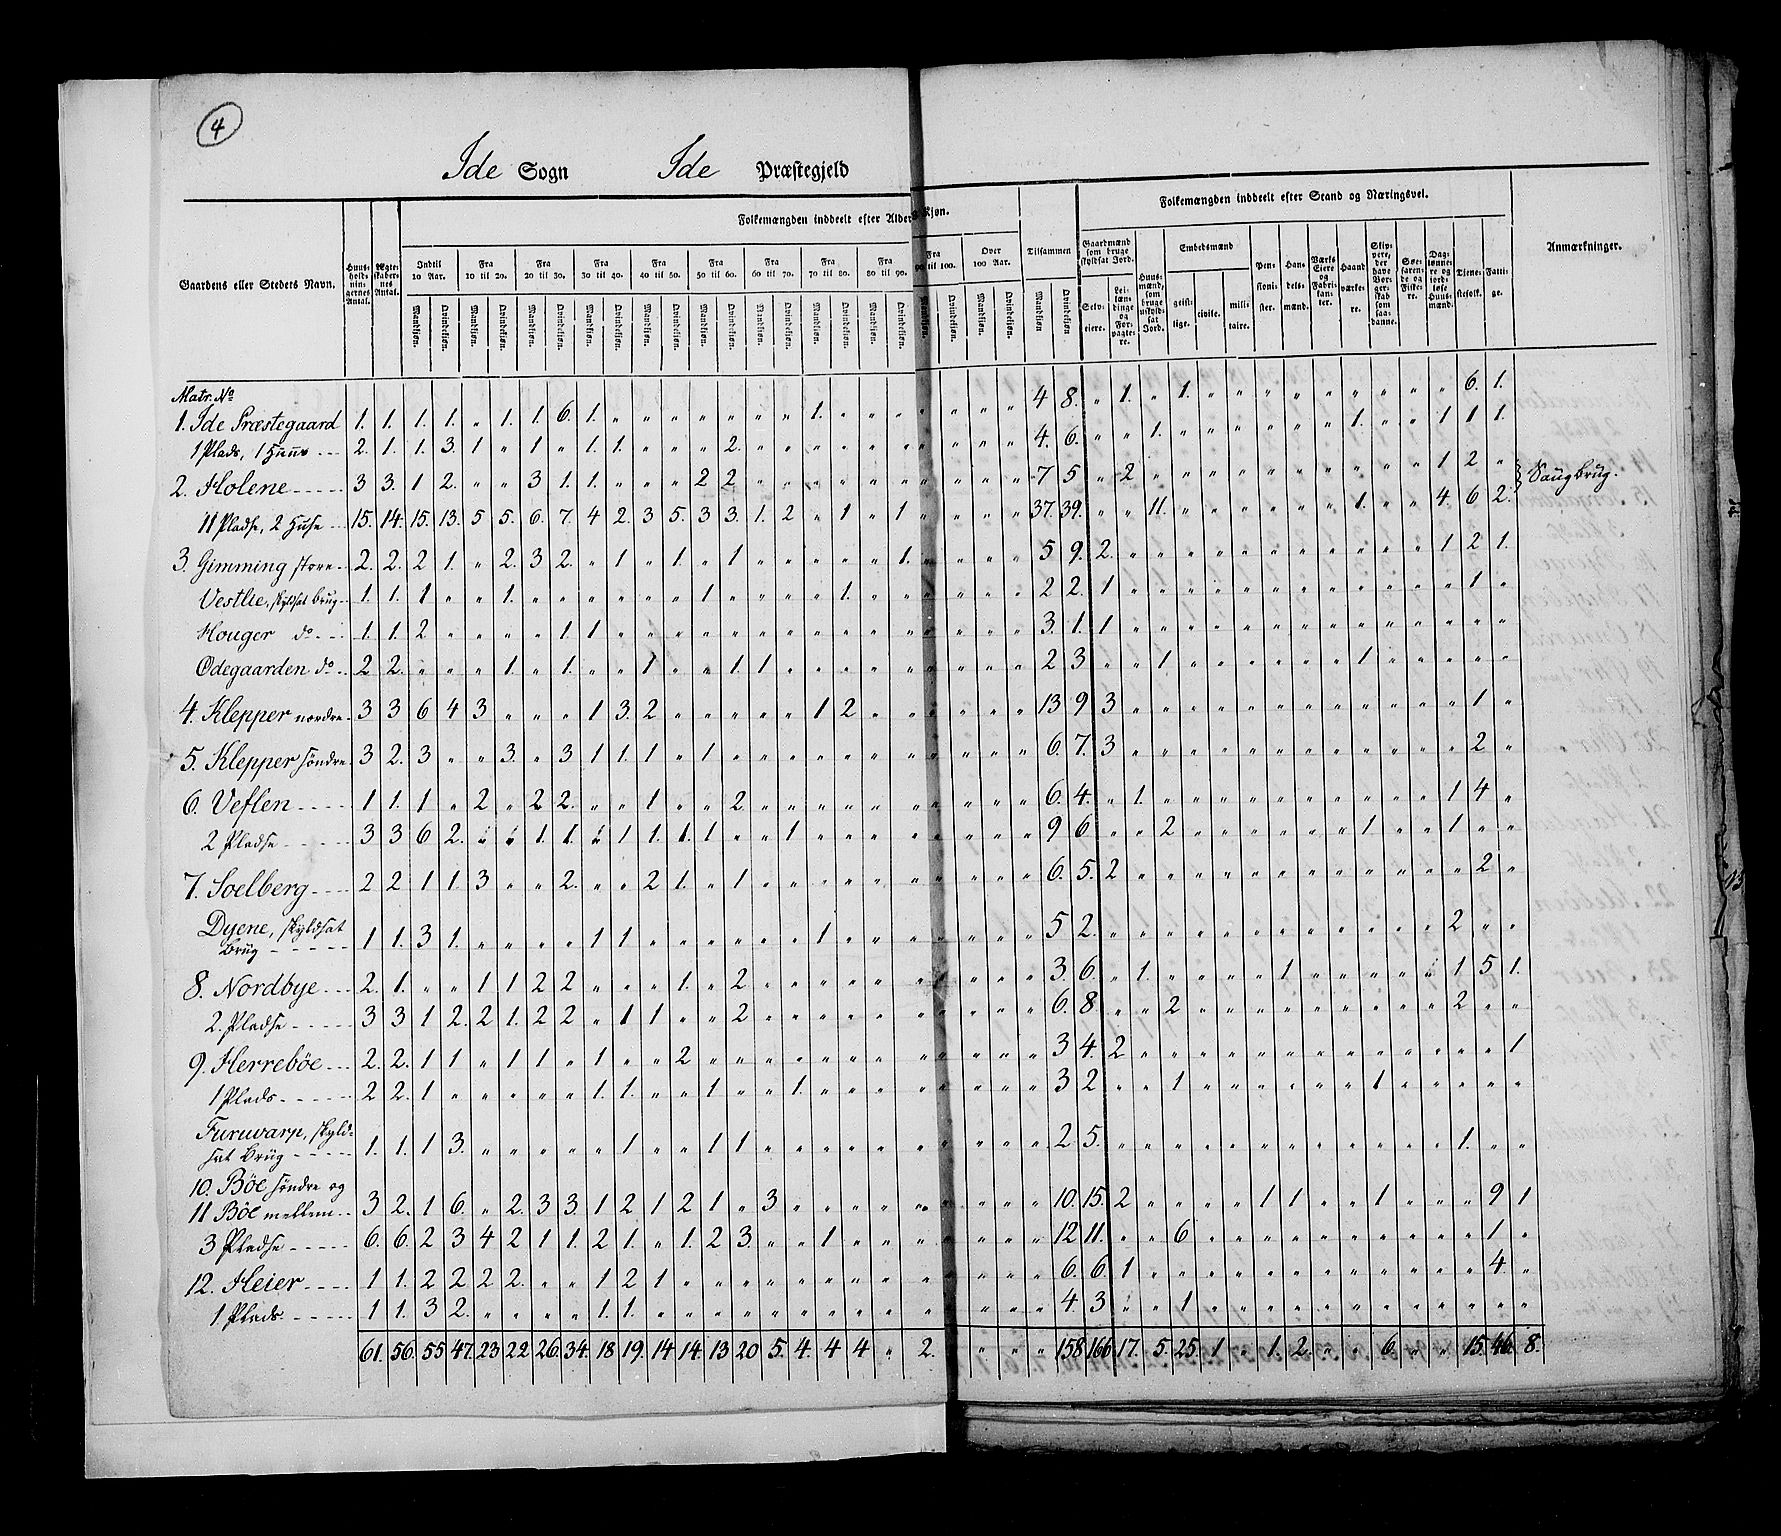 4
Ide Sogn Ide Præstegjeld
Folkemængden inddeelt efter Alder Kjøn.
Folkemængden inddeelt efter Stand og Næringsvei.
Gaardens eller Stedets Navn.
Huus-holdnin-gernes Antal.
Ægte-skaber-nes Antal.
Indtil 10 Aar.
Fra 10 til 20.
Fra 20 til 30.
Fra 30 til 40.
Fra 40 til 50.
Fra 50 til 60.
Fra 60 til 70.
Fra 70 til 80.
Fra 80 til 90.
Fra 90 til 100.
Over 100 Aar.
Tilsammen
Mandkjøn. Qvindekjøn.
Gaardmænd som bruge skyldsat Jord.
Selv-eiere.
Lei-læn-dinge og For-pagte-re.
Huus-mænd, som bruge uskyld-sat Jord.
Embedsmænd
geist-lige.
civile.
mili-taire.
Pen-sioni-ster.
Han-dels-mænd.
Værks Eiere og Fabri-kan-ter.
Haand værke-re.
Skip-pere, der have Bor-ger-skab som saa-danne.
Søe-faren-de og Fiske-re.
Dag-lønne-re og jord-løse Huus-mænd.
Tjene-stefolk.
Fatti-ge.
Anmærkninger.
Matr. No
1. Ide Præstegaard 1. 1. 1. 1. " 1. 1. 6. 1. " " " " " " " 1. " " " " " " " 4 8. " 1. " 1. " " " " " " " " " 6. 1.
1 Plads, 1 Huus 2. 1. 1. 3. 1 " 1 " 1. 1. " " " 2. " " " " " " " " " " 4. 6. " " 1. " " " " " " 1. " " 1 1 1.
2. Holene 3 3. 1 2. " " 3 1. 1. " " " 2 2 " " " " " " " " " " 7 5 " 2 " " " " " " " " " " 1 2 " Saugbrug.
11 Pladse, 2 Huse 15. 14. 15. 13. 5 5. 6. 7. 4 2. 3 5. 3 3. 1. 2 " 1 " 1 " " " " 37. 39. " " 11. " " " " " " 1. " " 4. 6 2.
3. Gimming store 2. 2. 2 1. " 2. 3 2. " 1 " 1. " 1 " " " " " 1. " " " " 5 9. 2. " " " " " " " " " " " 1 2 1.
Vestlie, skyldsat Brug 1. 1. 1 " " 1. " " " " " " 1 " " " " 1. " " " " " " 2 2. 1 " " " " " " " " " " " " 1 "
Houger do 1. 1. 2 " " " " 1 1 " " " " " " " " " " " " " " " 3. 1. 1 " " " " " " " " " " " " " "
Ødegaarden do 2 2. " " " 1 " 1. " " 1 " " 1 1 " " " " " " " " " 2 3 " " 1 " " " " " " 1 " " " " "
4. Klepper nordre 3 3 6 4 3 " " " 1 3. 2 " " " " " 1 2 " " " " " " 13 9 3 " " " " " " " " " " " " 1 "
5. Klepper søndre 3 2. 3 " " 3. " 3 1 1. 1 " 1 " " " " " " " " " " " 6. 7. 3 " " " " " " " " " " " " 2 "
6. Veflen 1 1. 1 " 2 " 2 2. " " 1 " " 2 " " " " " " " " " " 6. 4. " 1. " " " " " " " " " " 1 4 "
2 Pladse 3 3 6 2. " " 1. 1. " 1 1. 1. 1 " " 1 " " " " " " " " 9 6 " " 2 " " " " " " 1 " " 1 " "
7. Soelberg 2 2 1 1. 3 " " 2. " " 2 1. " 1 " " " " " " " " " " 6. 5. 2 " " " " " " " " " " " " 2 "
Dyene, skyldsat
Brug 1 1. 3 1. " " " " 1 1 " " " " " " 1 " " " " " " " 5 2. " " " " " " " " " " " " 2 " "
8. Nordbye 2. 1. " " 1 1 2 2 " " " 1. " 2 " " " " " " " " " " 3 6 " 1. " " " " 1 " " " " " 1 5 1.
2. Pladse 3 3 1 2. 2 1. 2 2 " 1 1 " " 2 " " " " " " " " " " 6. 8 " " 2 " " " " " " " " " 2 " "
9. Herrebøe 2. 2. 1 1 " 1 1 " 1 " " 2 " " " " " " " " " " " " 3 4. 2 " " " " " " " " " " " " " 1
1 Plads 2 2. 1 " " " " " 1. 1. " " 1 " " 1. " " " " " " " " 3 2 " " 1 " " " " " " 1 " " " " "
Furuvarp, skyld-
sat Brug 1. 1. 1 3. " " " " " 1 " " 1 1 " " " " " " " " " " 2 5. " " " " " " " " " " " " 1. " "
10. Bøe søndre og
11 Bøe mellem 3 2. 1 6. " 2. 3 3. 1 2 1 2 1 " 3 " " " " " " " " " 10. 15. 2 " " " " 1 1 " " 1 " " " 9 1
3 Pladse 6. 6. 2 3 4 2 1 1. 2 1. " 1. 2 3. " " 1 " " " " " " " 12 11. " " 6 " " " " " " " " " " 1 "
12. Heier 1 1. 2 2 2 2. " " 1 2 1 " " " " " " " " " " " " " 6. 6. 1 " " " " " " " " " " " " 4. "
1 Plads 1 1. 3 2. " " " " 1. 1. " " " " " " " " " " " " " " 4 3 " " 1 " " " " " " " " " " " "
61. 56. 55 47. 23 22 26. 34. 18 19. 14 14. 13 20 5. 4. 4 4 " 2. " " " " 158 166 17. 5. 25. 1 " 1. 2. " " 6. " " 15. 46. 8.